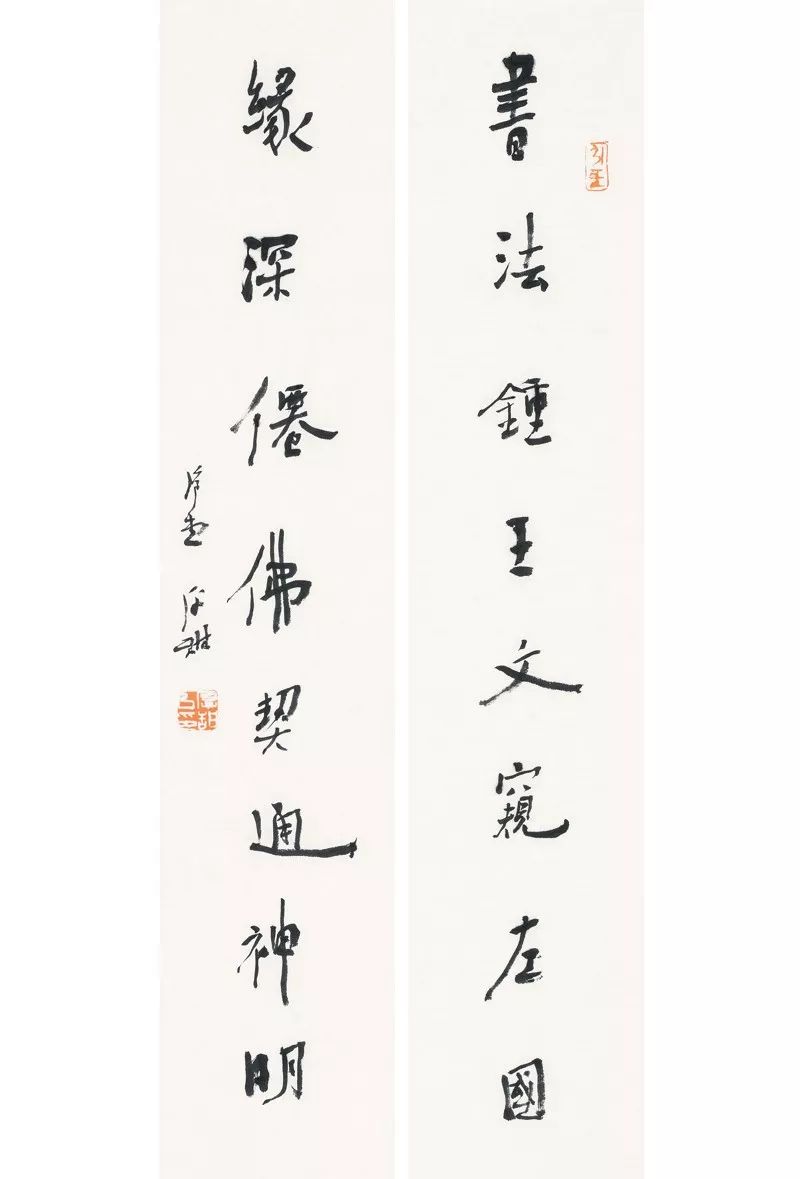 書法鍾王文窺左國
緣深僊佛契通神明